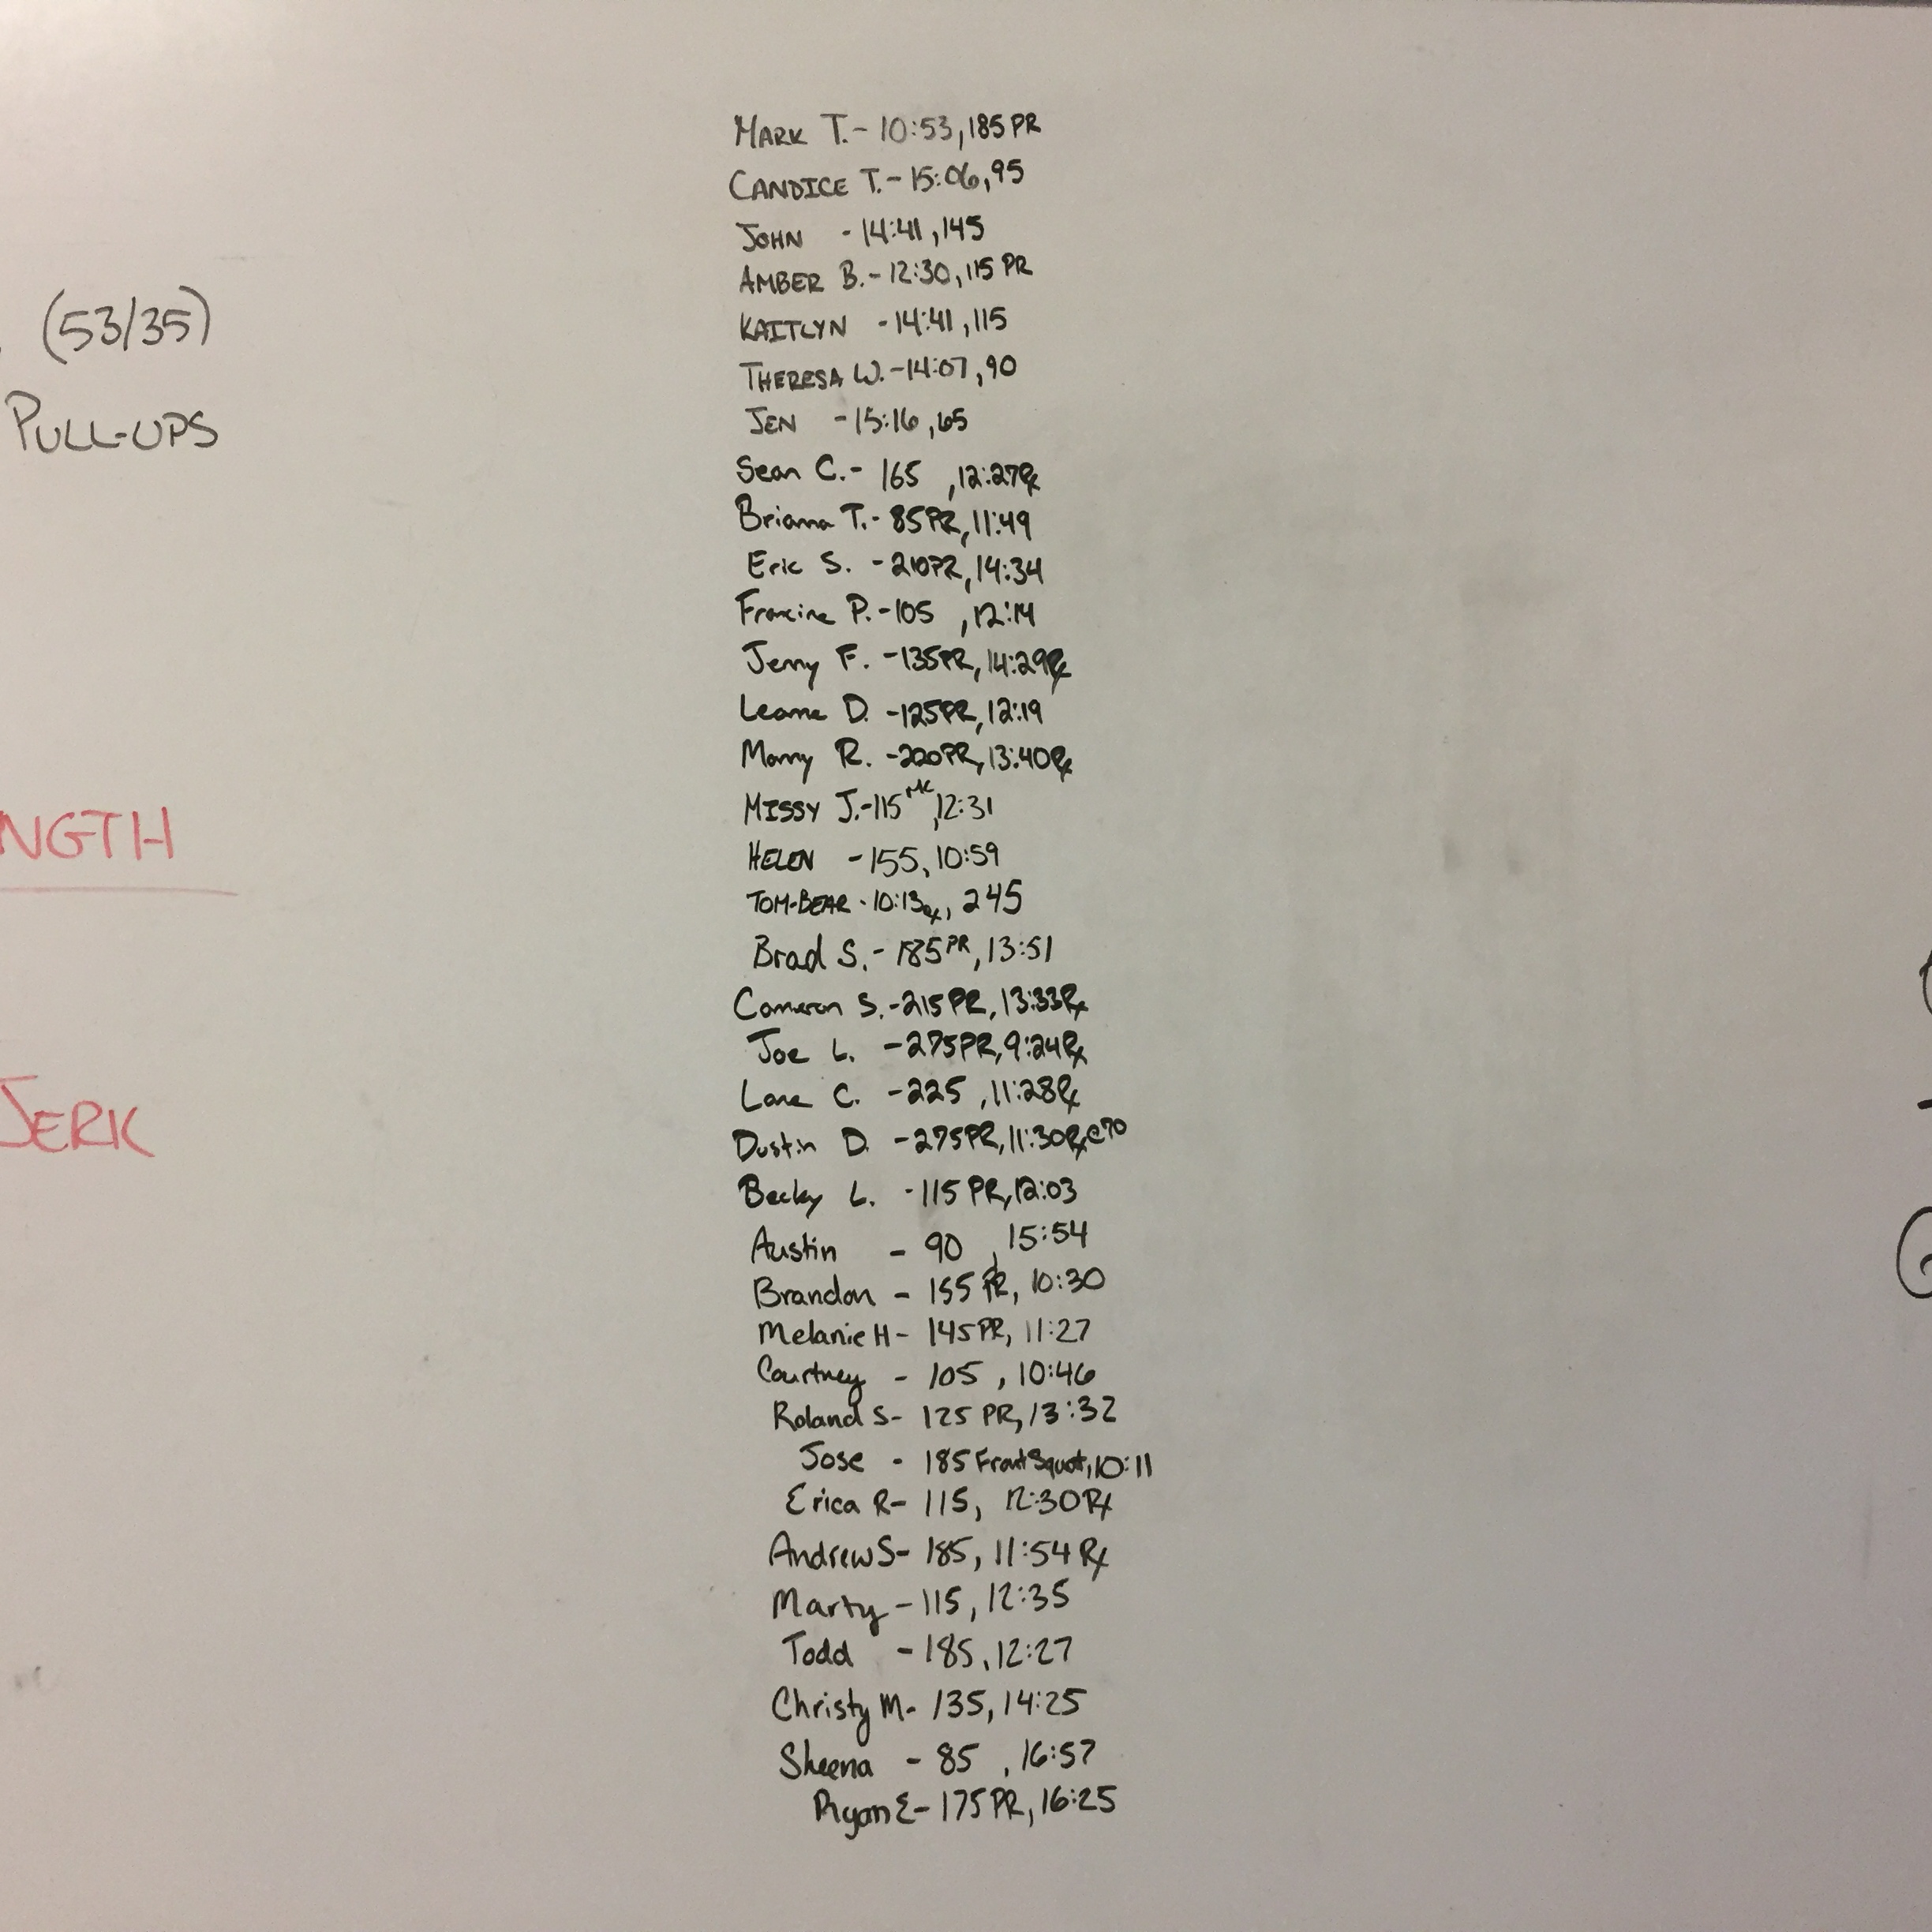 (53/35)
PULL-UPS
NGTH
JERK
MARK T. - 10:53, 185 PR
CANDICE T. - 15:06, 95
JOHN - 14:41, 145
AMBER B. - 12:30, 115 PR
KAITLYN - 14:41, 115
THERESA W. - 14:07, 90
JEN - 15:16, 65
Sean C. - 165, 12:27 Rx
Brianna T. - 85PR, 11:49
Eric S. - 210PR, 14:34
Francine P. - 105, 12:14
Jenny F. - 135PR, 14:29 Rx
Leanne D. - 125PR, 12:19
Manny R. - 220PR, 13:40 Rx
MISSY J. - 115 MC, 12:31
HELEN - 155, 10:59
TOM-BEAR - 10:13 Rx, 245
Brad S. - 185 PR, 13:51
Cameron S. - 215 PR, 13:33 Rx
Joe L. - 275PR, 9:24 Rx
Lane C. - 225, 11:28 Rx
Dustin D. - 275PR, 11:30 Rx @70
Becky L. - 115 PR, 12:03
Austin - 90, 15:54
Brandon - 155 PR, 10:30
Melanie H - 145PR, 11:27
Courtney - 105, 10:46
Roland S - 125 PR, 13:32
Jose - 185 Front Squat, 10:11
Erica R - 115, 12:30 Rx
Andrew S - 185, 11:54 Rx
Marty - 115, 12:35
Todd - 185, 12:27
Christy M - 135, 14:25
Sheena - 85, 16:57
Ryan E - 175 PR, 16:25